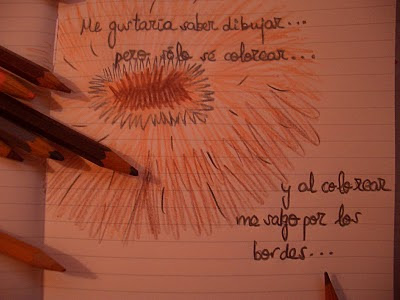 Me gustaría saber dibujar...
pero sólo sé colorear...
y al colorear
me salgo por los
bordes...